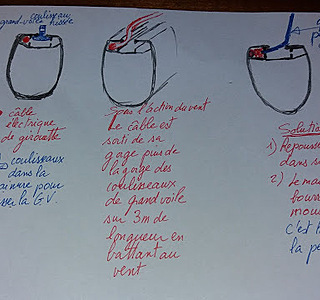 coulisseau
grand-voile hissée
câble
électrique
de girouette
coulisseaux
dans la
rainure pour
hisser la GV.
Sous l'action du vent
Le câble est
sorti de sa
gorge puis de
la gorge des
coulisseaux
de grand voile
sur 3m de
longueur en
battant au
vent
Solution
1) Repousse
dans s
2) Le ma
bourr
mous
c'est t
la pe